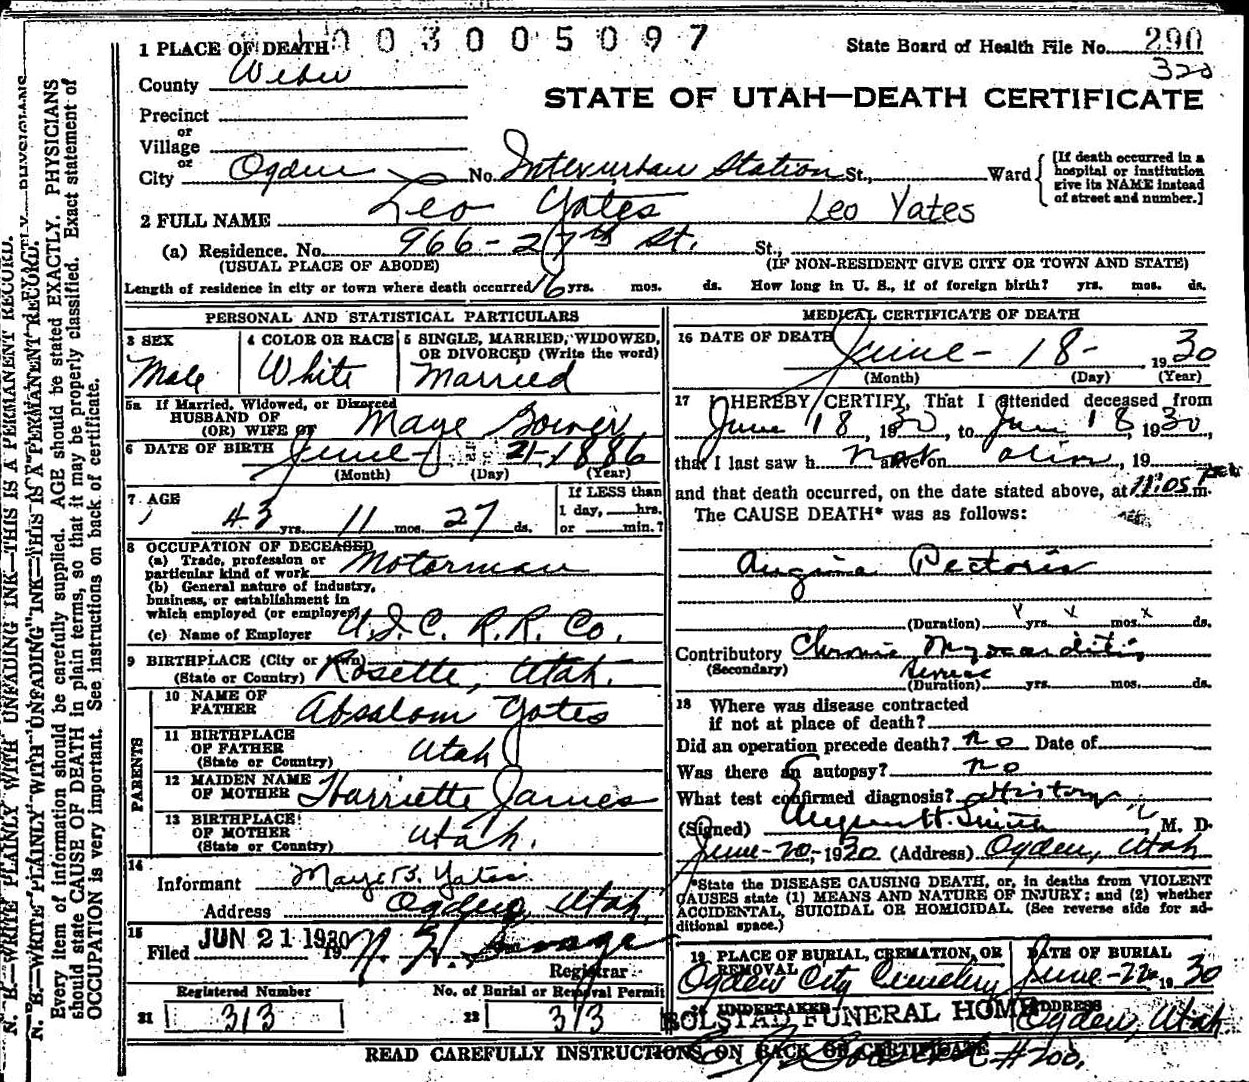 1 PLACE OF DEATH 003005097
State Board of Health File No. 290
320
County Weber
STATE OF UTAH—DEATH CERTIFICATE
Precinct
or
Village
or
City Ogden No. Interurban Station St., Ward [If death occurred in a hospital or institution give its NAME instead of street and number.]
2 FULL NAME Leo Yates Leo Yates
(a) Residence. No. 966-27th St. St.,
(USUAL PLACE OF ABODE) (IF NON-RESIDENT GIVE CITY OR TOWN AND STATE)
Length of residence in city or town where death occurred yrs. mos. ds. How long in U. S., if of foreign birth? yrs. mos. ds.
PERSONAL AND STATISTICAL PARTICULARS
3 SEX
Male
4 COLOR OR RACE
White
5 SINGLE, MARRIED, WIDOWED,
OR DIVORCED (Write the word)
Married
5a If Married, Widowed, or Divorced
HUSBAND OF
(OR) WIFE OF Maye
6 DATE OF BIRTH June 21-1886
(Month) (Day) (Year)
7 AGE
43 yrs. 11 mos. 27 ds.
If LESS than
1 day, hrs.
or min.?
8 OCCUPATION OF DECEASED
(a) Trade, profession or
particular kind of work Motorman
(b) General nature of industry,
business, or establishment in
which employed (or employer)
(c) Name of Employer U.I.C. R.R. Co.
9 BIRTHPLACE (City or town)
(State or Country) Rosette, Utah.
PARENTS
10 NAME OF
FATHER Absalom Yates
11 BIRTHPLACE
OF FATHER
(State or Country) Utah
12 MAIDEN NAME
OF MOTHER Harriette James
13 BIRTHPLACE
OF MOTHER
(State or Country) Utah.
14
Informant Maye B. Yates.
Address Ogden, Utah.
15
Filed JUN 21 1930 19 N. H. Savage
Registrar
Registered Number No. of Burial or Removal Permit
21 313 22 313
MEDICAL CERTIFICATE OF DEATH
16 DATE OF DEATH June-18-1930
(Month) (Day) (Year)
17 I HEREBY CERTIFY, That I attended deceased from
June 18, 1930, to June 18, 1930,
that I last saw h not alive on alive, 19
and that death occurred, on the date stated above, at 11:05 m.
The CAUSE DEATH* was as follows:
Angina Pectoris
(Duration) yrs. x mos. x ds.
Contributory Chronic Myocarditis
(Secondary) severe
(Duration) yrs. mos. ds.
18 Where was disease contracted
if not at place of death?
Did an operation precede death? no Date of
Was there an autopsy? no
What test confirmed diagnosis? History
(Signed) Smith, M. D.
June-20-1930 (Address) Ogden, Utah
*State the DISEASE CAUSING DEATH, or, in deaths from VIOLENT
CAUSES state (1) MEANS AND NATURE OF INJURY; and (2) whether
ACCIDENTAL, SUICIDAL OR HOMICIDAL. (See reverse side for ad-
ditional space.)
19 PLACE OF BURIAL, CREMATION, OR
REMOVAL
Ogden City Cemetery
DATE OF BURIAL
June-22 1930
20 UNDERTAKER
BOLSTAD FUNERAL HOME
ADDRESS
Ogden, Utah
#200.
READ CAREFULLY INSTRUCTIONS ON BACK OF CERTIFICATE
N. B.—WRITE PLAINLY WITH UNFADING INK—THIS IS A PERMANENT RECORD.
N. B.—WRITE PLAINLY WITH UNFADING INK—THIS IS A PERMANENT RECORD.
Every item of information should be carefully supplied. AGE should be stated EXACTLY. PHYSICIANS
should state CAUSE OF DEATH in plain terms, so that it may be properly classified. Exact statement of
OCCUPATION is very important. See instructions on back of certificate.